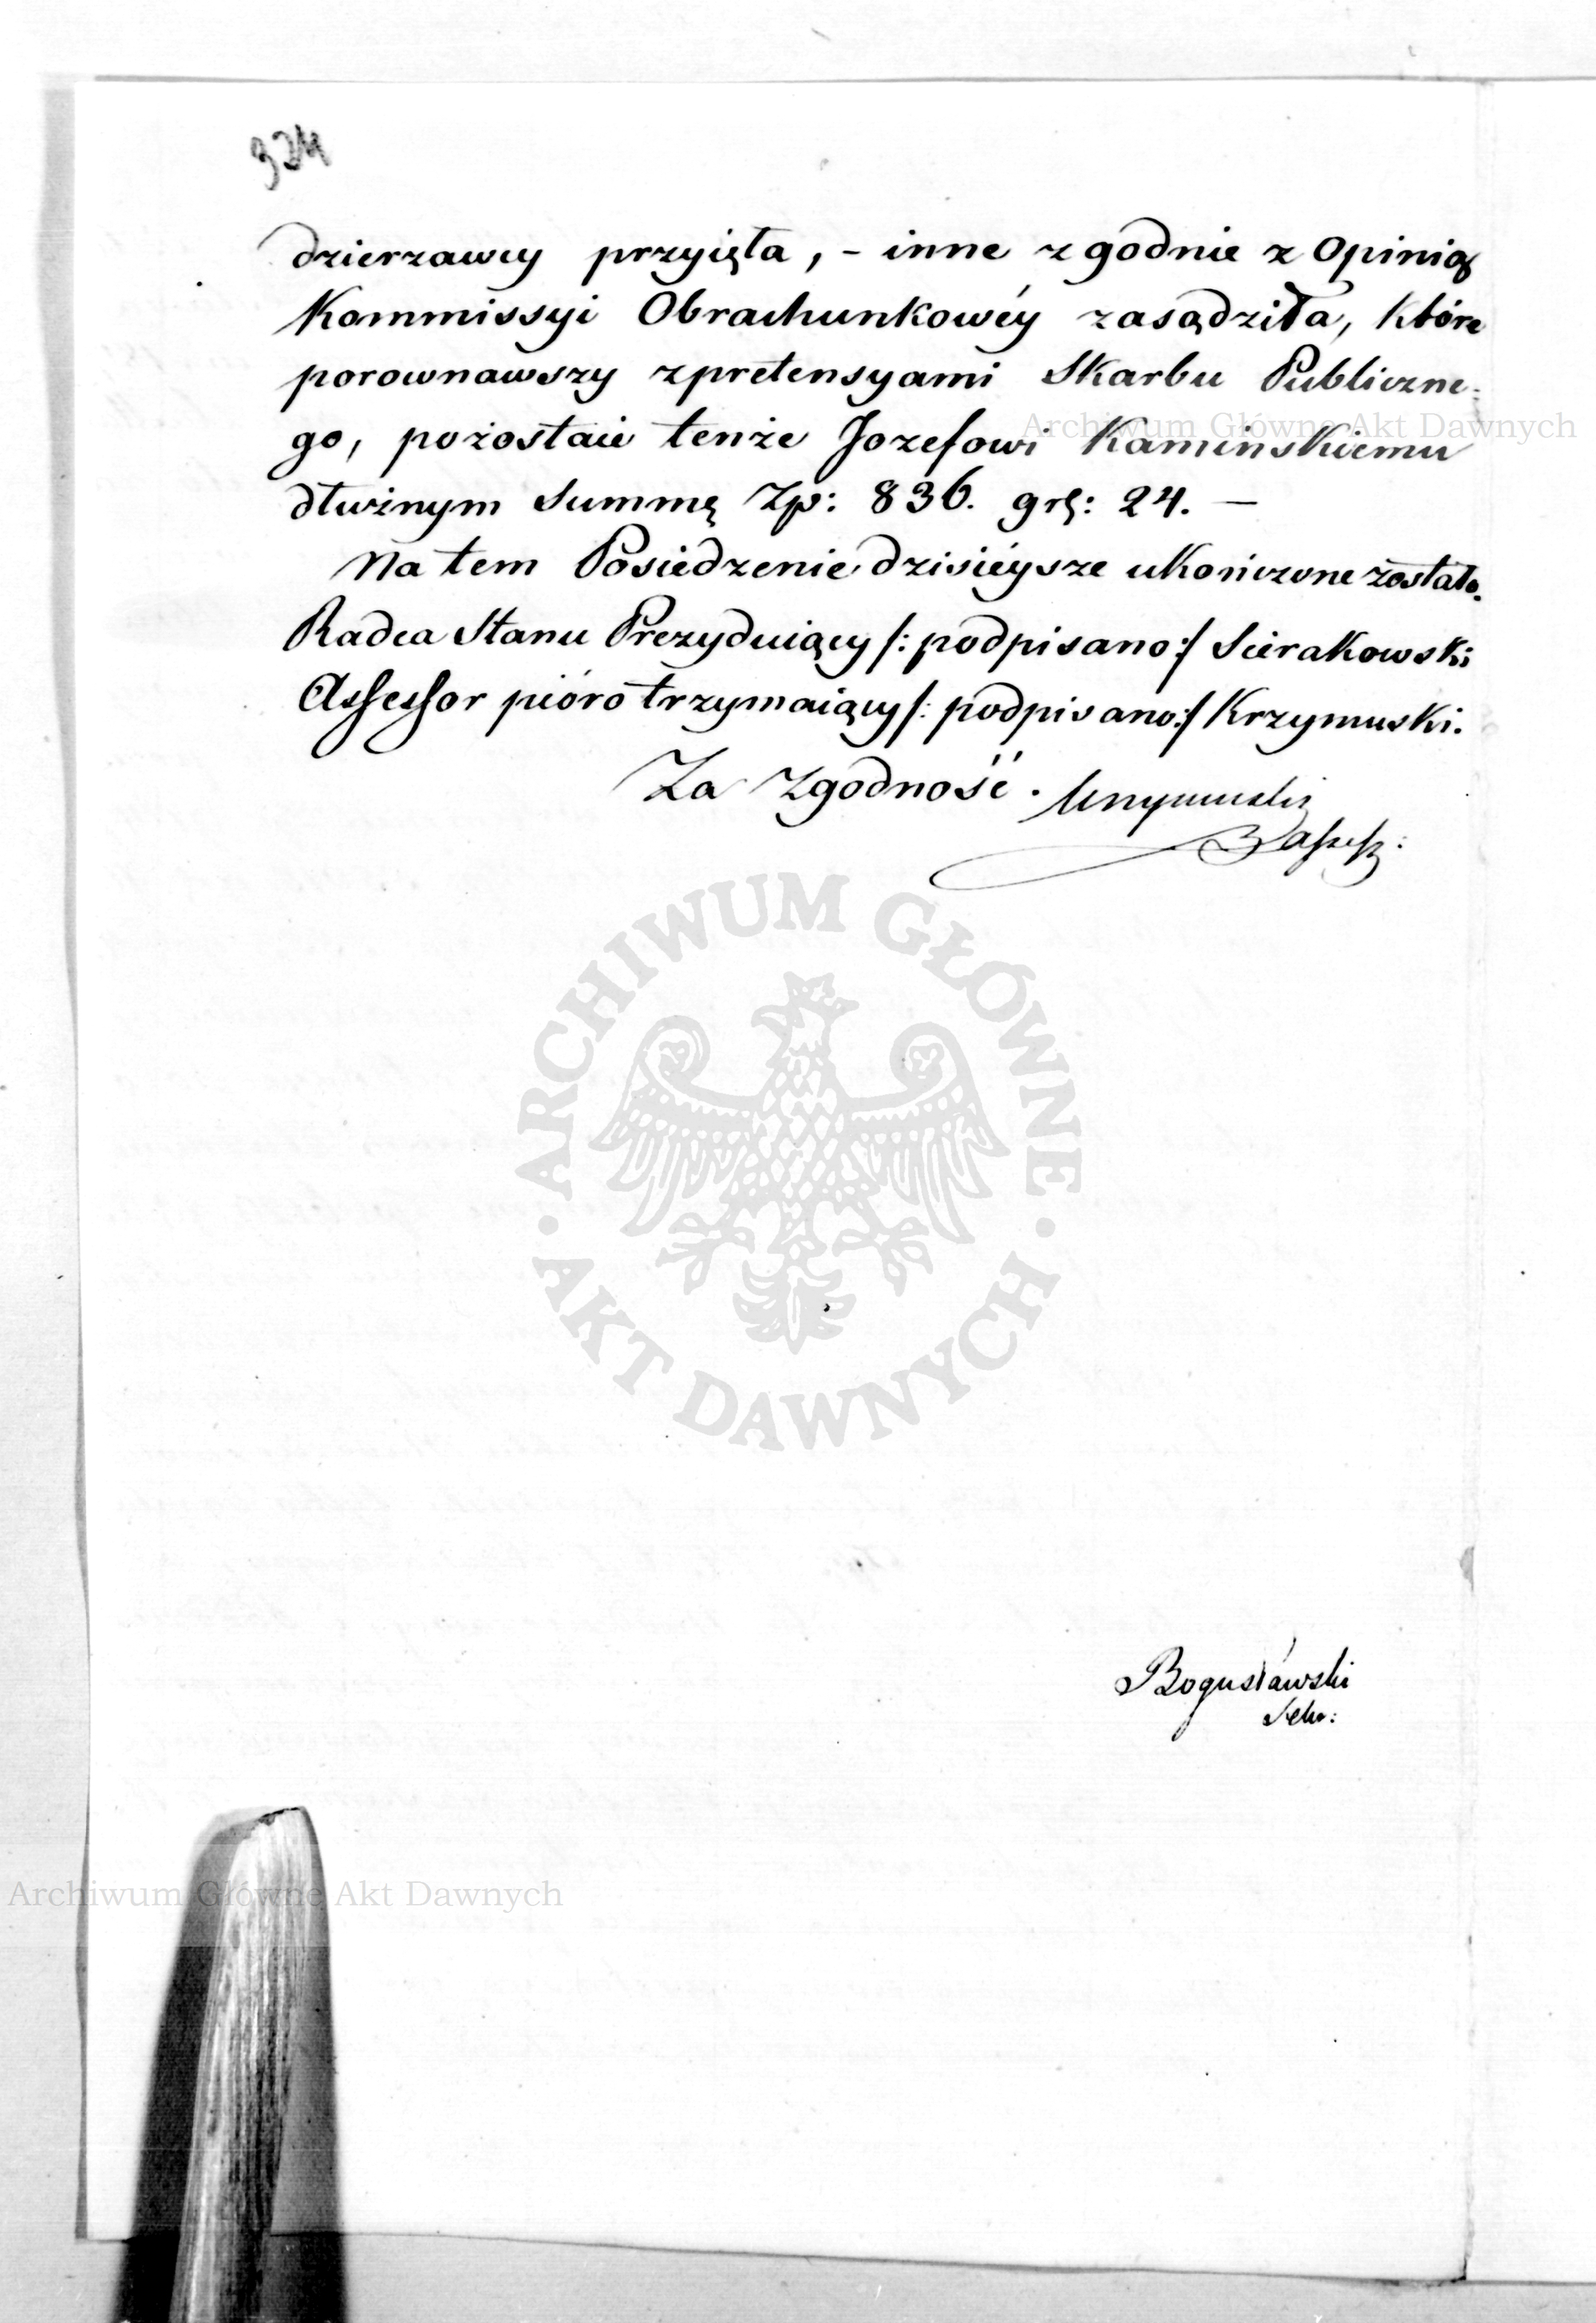 324
dzierzawcy przyięta, - inne zgodnie z Opinią
Kommissyi Obrachunkowéy zasądziła, które
porownawszy zpretensyami Skarbu Publiczne:
go, pozostaie tenże Jozefowi Kamińskiemu
dłużnym Summę Zp: 836. gr: 24. —
Na tem Posiedzenie dzisiéysze ukończone zostało.
Radca Stanu Prezyduiący /: podpisano :/ Sierakowski
Assessor pióro trzymaiący /: podpisano :/ Krzymuski.
Za Zgodność. Krzymuski
Assess:
Bogusławski
Sekr:
Archiwum Główne Akt Dawnych
ARCHIWUM GŁÓWNE
· AKT DAWNYCH ·
Archiwum Główne Akt Dawnych